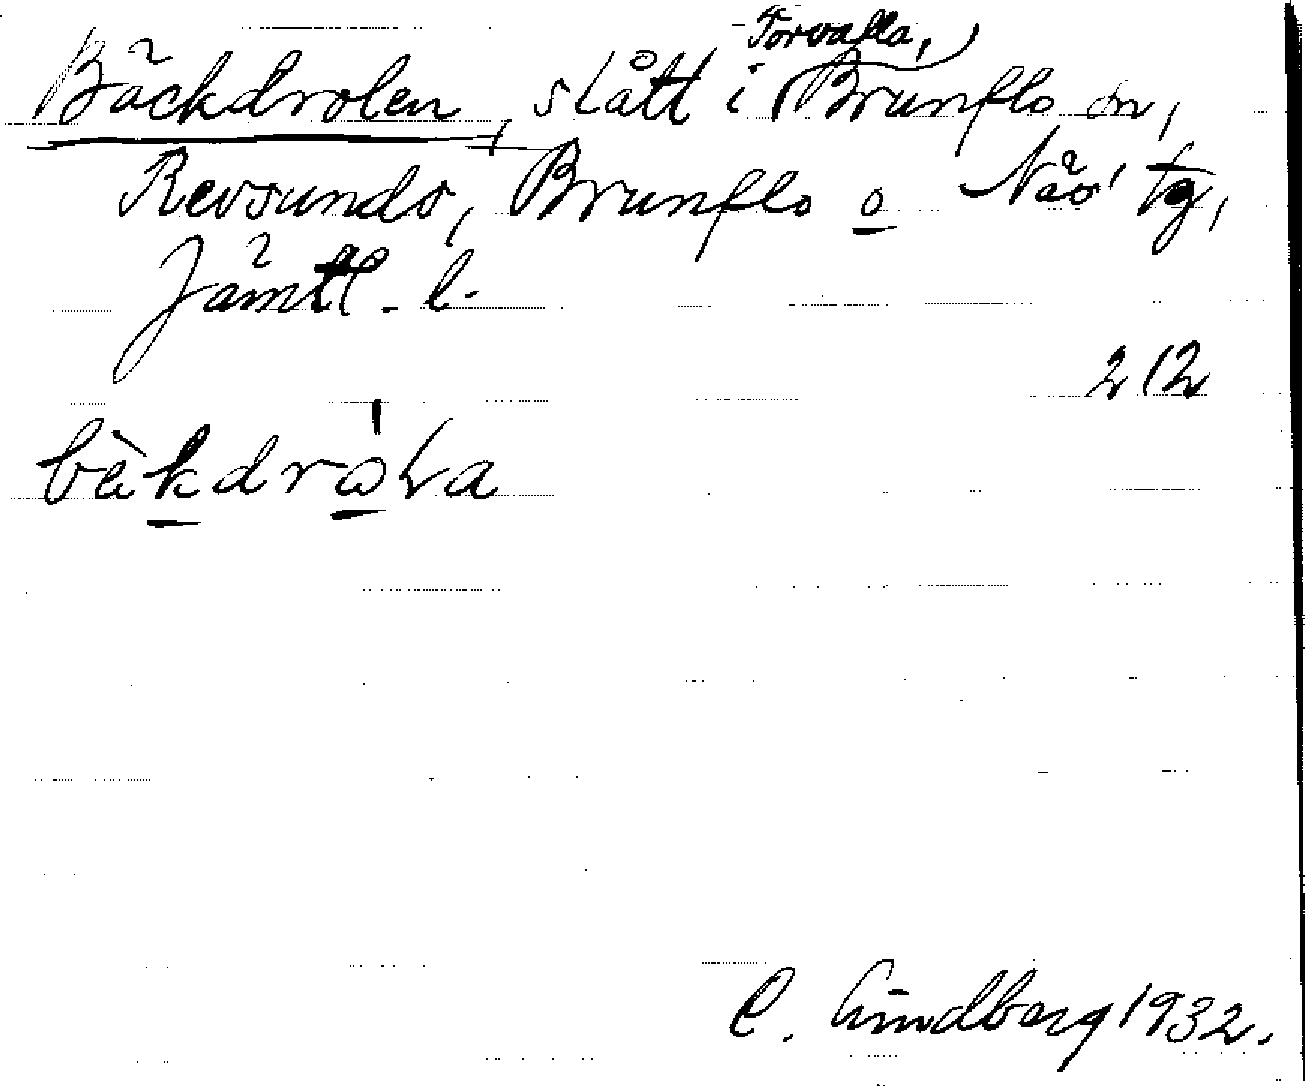 Torvalla,
Bäckdrolen, slått i Brunflo sn,
Revsunds, Brunflo o Näs' tg,
Jämtl. l.
212
bèkdròLa
C. Lindberg 1932.